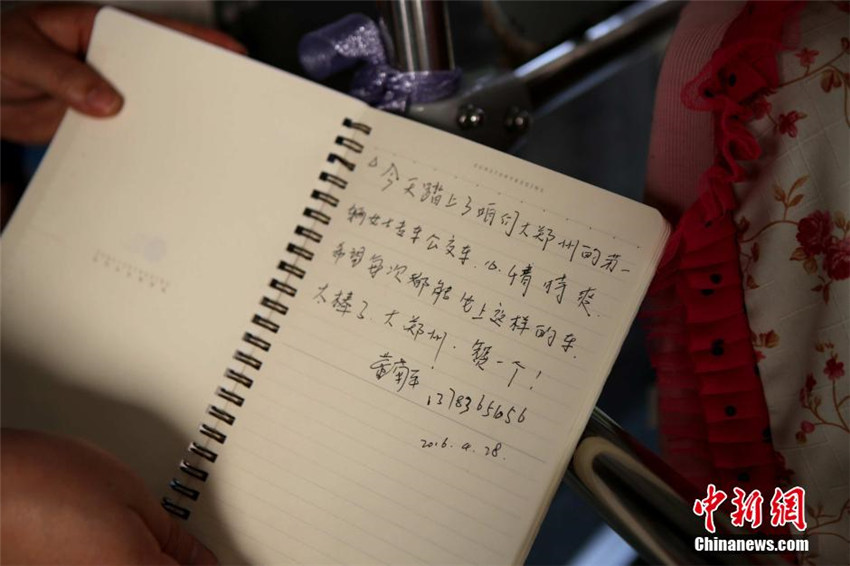 △今天踏上了咱们大郑州的第一
辆女士专车公交车.心情特爽.
希望每次都能坐上这样的车.
太棒了.大郑州.赞一个!
2016.4.28.
中新网
Chinanews.com